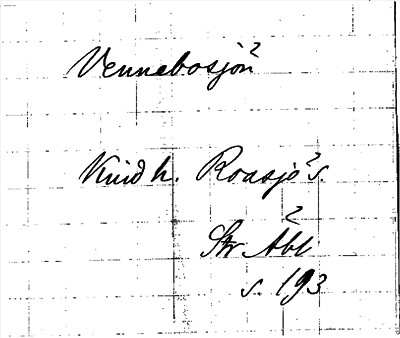 Vennebosjön
Kind h. Roasjö s.
Str Åbl
s. 193